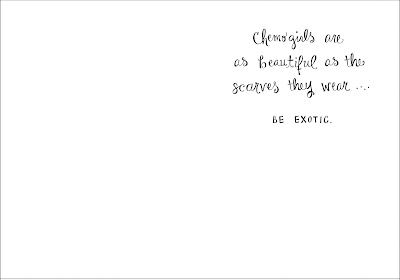 Chemo girls are
as beautiful as the
scarves they wear ....
BE EXOTIC.